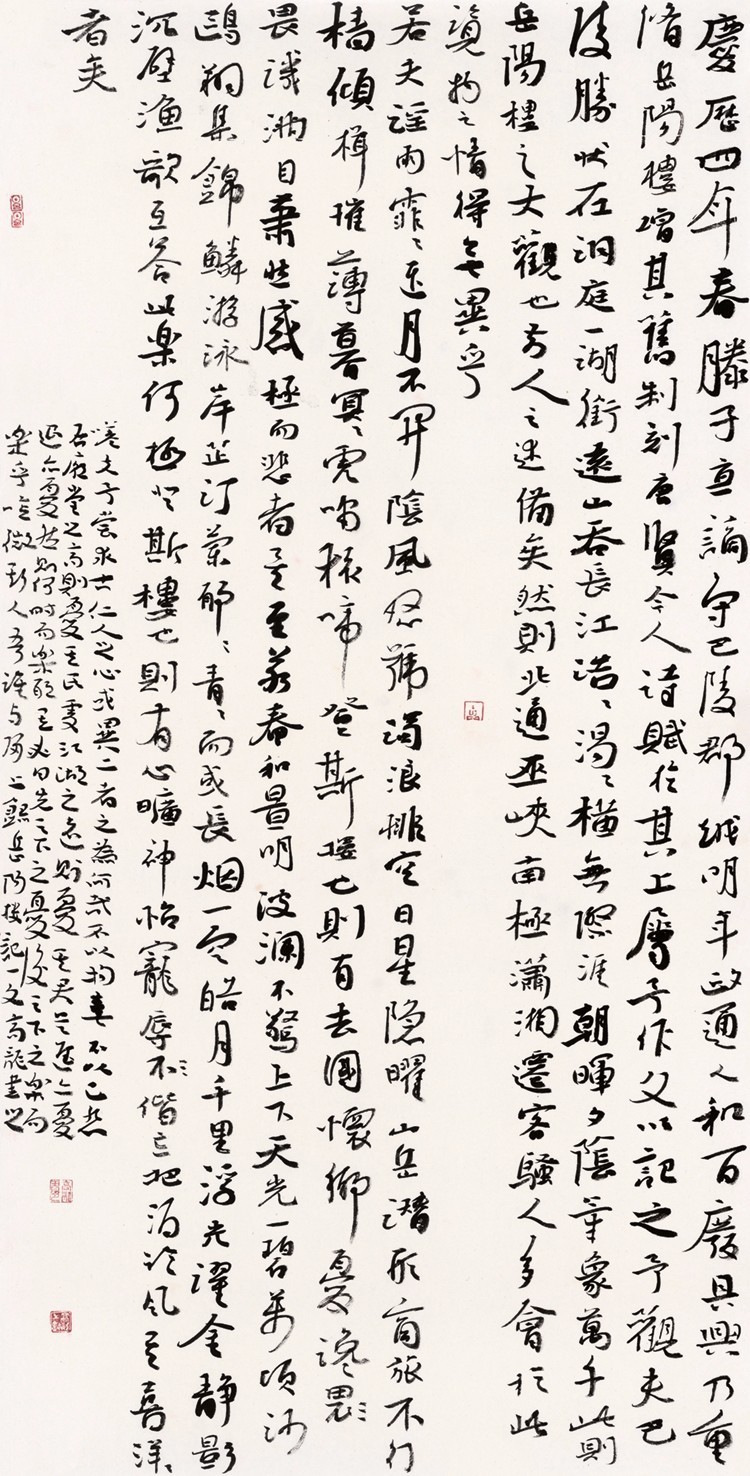 慶歷四年春滕子京謫守巴陵郡越明年政通人和百廢具興乃重
脩岳陽樓增其舊制刻唐賢今人詩賦於其上屬予作文以記之予觀夫巴
陵勝狀在洞庭一湖銜遠山吞長江浩〻湯〻橫無際涯朝暉夕陰氣象萬千此則
岳陽樓之大觀也前人之述備矣然則北通巫峽南極瀟湘遷客騷人多會於此
覽物之情得無異乎
若夫霪雨霏〻連月不開陰風怒號濁浪排空日星隱曜山岳潛形商旅不行
檣傾楫摧薄暮冥〻虎嘯猿啼登斯樓也則有去國懷鄉憂讒畏〻
畏譏滿目蕭然感極而悲者矣至若春和景明波瀾不驚上下天光一碧萬頃沙
鷗翔集錦鱗游泳岸芷汀蘭郁〻青〻而或長烟一空皓月千里浮光躍金靜影
沉璧漁歌互答此樂何極登斯樓也則有心曠神怡寵辱不〻偕忘把酒臨風其喜洋〻
者矣
嗟夫予嘗求古仁人之心或異二者之為何哉不以物喜不以己悲
居廟堂之高則憂其民處江湖之遠則憂其君是進亦憂
退亦憂然則何時而樂耶其必曰先天下之憂後天下之樂而
樂乎噫微斯人吾誰與歸上錄岳陽樓記一文高龍書之